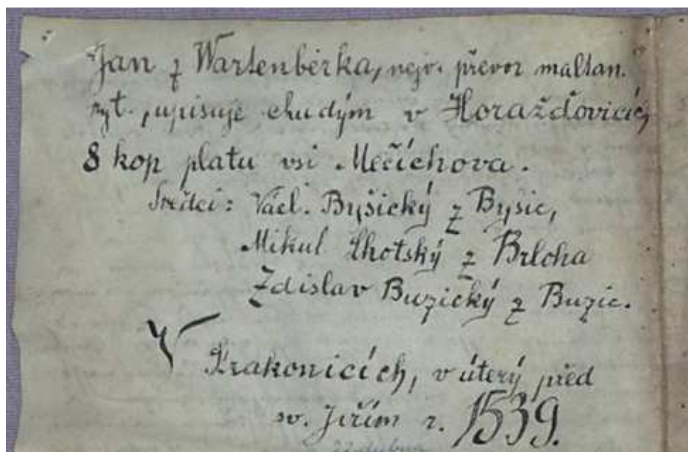 Jan z Wartenberka, nejv. převor maltan.
ryt., upisuje chudým v Horažďovicích
8 kop platu vsi Mečichova.
Svědci: Václ. Byšický z Byšic,
Mikul Lhotský z Brloha
Zdislav Buzický z Buzic.
V Strakonicích, v úterý před
sv. Jiřím r. 1539.
22 dubna